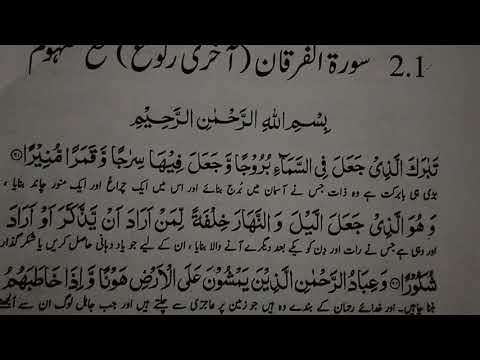 2.1 سورۃ الفرقان (آخری رکوع) مع مفہوم
بِسْمِ اللهِ الرَّحْمٰنِ الرَّحِيْمِ
تَبٰرَكَ الَّذِيْ جَعَلَ فِي السَّمَآءِ بُرُوْجًا وَّ جَعَلَ فِيْهَا سِرٰجًا وَّ قَمَرًا مُّنِيْرًا ﴿۶۱﴾
بڑی ہی بابرکت ہے وہ ذات جس نے آسمان میں بُرج بنائے اور اس میں ایک چراغ اور ایک منور چاند بنایا،
وَ هُوَ الَّذِيْ جَعَلَ الَّيْلَ وَ النَّهَارَ خِلْفَةً لِّمَنْ اَرَادَ اَنْ يَّذَّكَّرَ اَوْ اَرَادَ
اور وہی ہے جس نے رات اور دن کو یکے بعد دیگرے آنے والا بنایا، ان کے لیے جو یاد دہانی حاصل کریں یا شکر گذار
شُكُوْرًا ﴿۶۲﴾ وَ عِبَادُ الرَّحْمٰنِ الَّذِيْنَ يَمْشُوْنَ عَلَى الْاَرْضِ هَوْنًا وَّ اِذَا خَاطَبَهُمُ
بننا چاہیں۔ اور خدائے رحمان کے بندے وہ ہیں جو زمین پر عاجزی سے چلتے ہیں اور جب جاہل لوگ ان سے